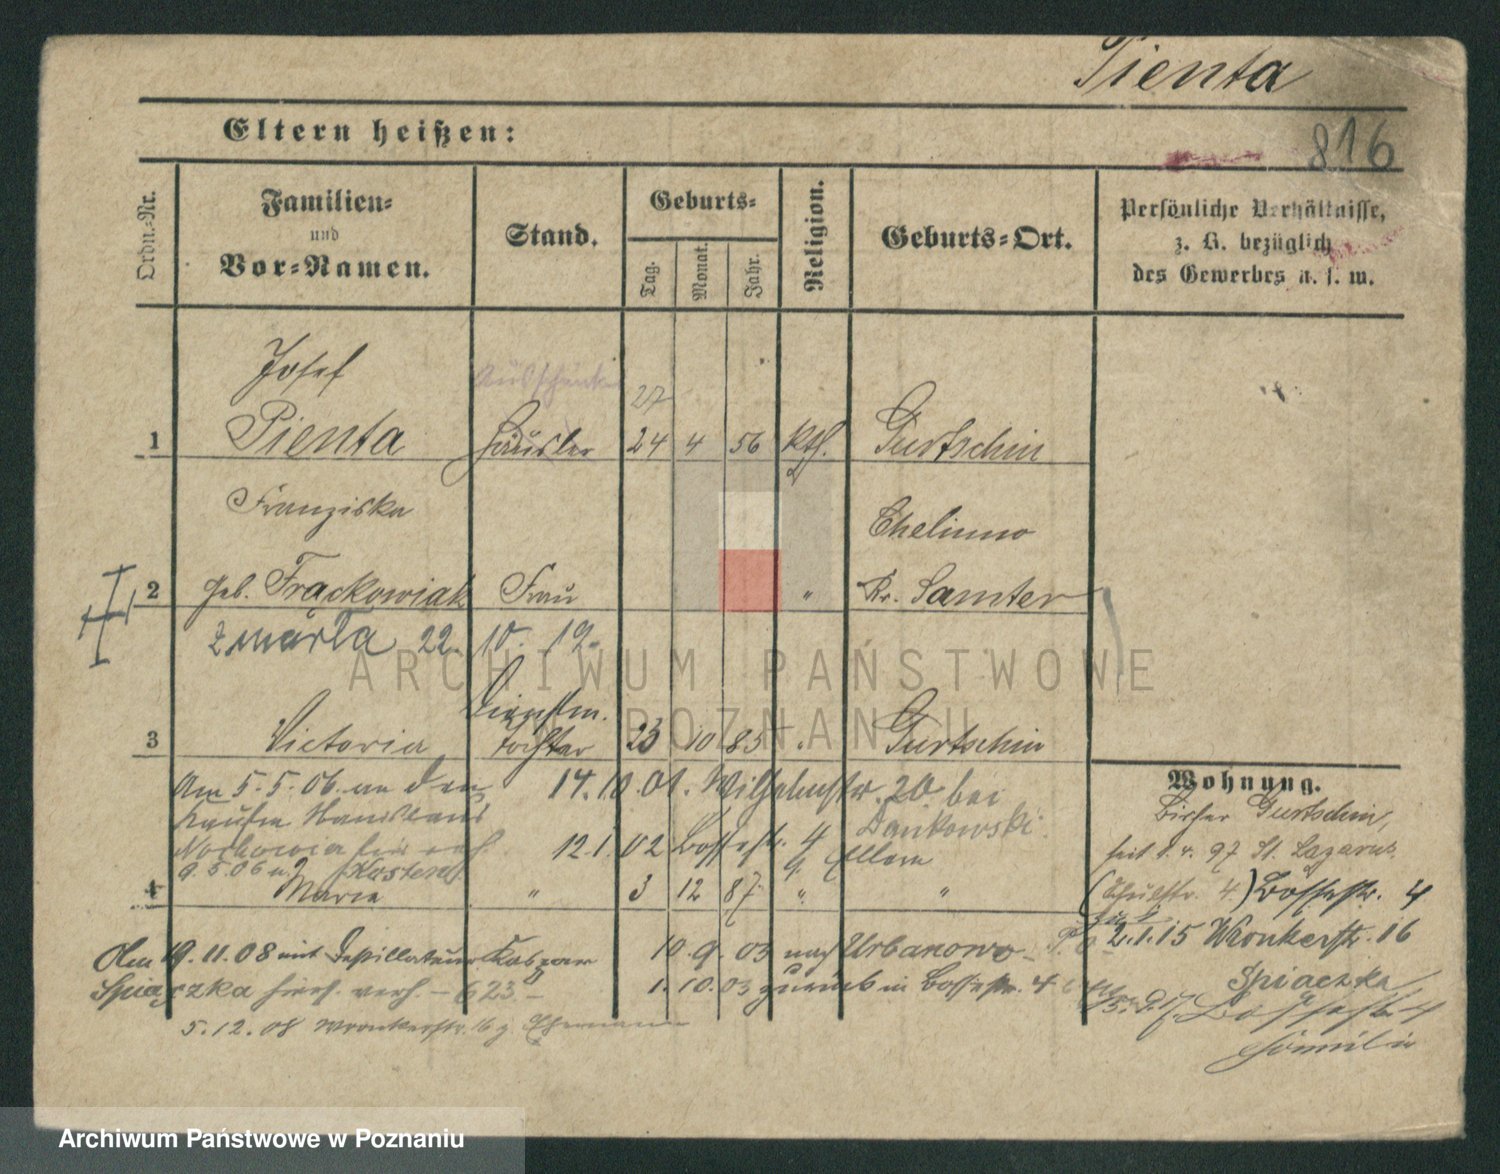 Pienta
816
Eltern heißen:
Ordn.-Nr.
Familien- und Vor-Namen.
Stand.
Geburts-
Tag.
Monat.
Jahr.
Religion.
Geburts-Ort.
Persönliche Verhältnisse,
z. B. bezüglich
des Gewerbes u. s. w.
Josef
27
1 Pienta Häusler 24 4 56 kth. Gurtschin
Franziska Chelmno
2 geb. Frąckowiak Frau " Kr. Samter
zmarła 22. 10. 19.
3 Victoria Tochter 23 10 85 " Gurtschin
Wohnung.
Am 5.5.06. an den 14.10.01. Wilhelmstr. 20 bei
Bisher Gurtschin,
Dankowski
12.1.02 Bosestr. 4
Eltern
seit 1.4.97 St. Lazarus
9.5.06
4 Marie " 3 12 87 " "
(Schulstr. 4.) Bosestr. 4
Am 19.11.08 mit Destillateur Kaspar 10.9.03 nach Urbanowo
2.1.15 Wronkerstr. 16
Spiączka hiers. verh. – 623. – 1.10.03 zurück in Bosestr. 4
Spiaczka
5.12.08 Wronkerstr. 16 z. Ehemann
ARCHIWUM PAŃSTWOWE
W POZNANIU
Archiwum Państwowe w Poznaniu